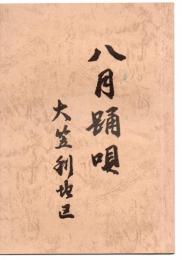 八月踊唄
大笠利地区